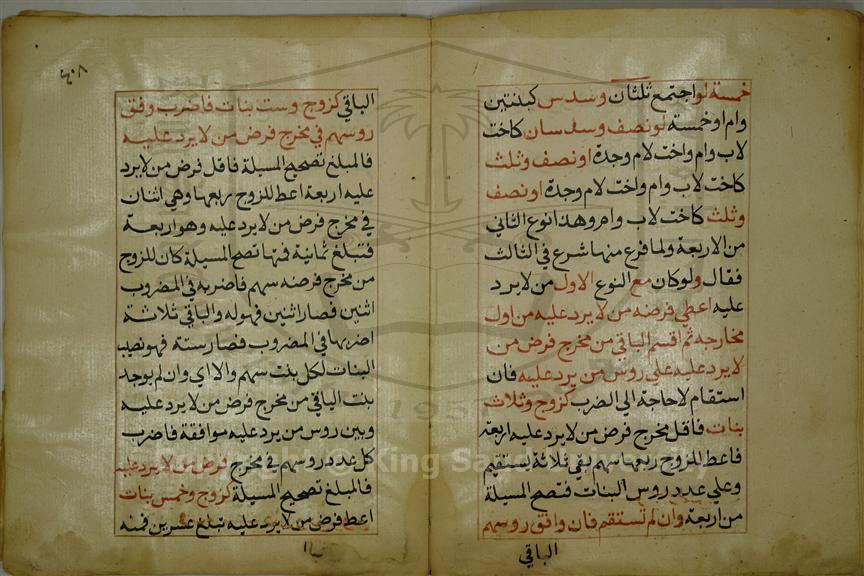 خمسة لو اجتمع ثلثان وسدس كبنتين
وام او خمسة لو نصف وسدسان كاخت
لاب وام واخت لام وجدة او نصف وثلث
كاخت لاب وام واخت لام وجدة او نصف
وثلث كاخت لاب وام وهذا نوع الثاني
من الاربعة ولما فرغ منها شرع في الثالث
فقال ولو كان مع النوع الاول من لا يرد
عليه اعطي فرضه من لا يرد عليه من اول
مخارجه ثم اقسم الباقي من مخرج فرض من
لا يرد عليه علي روس من يرد عليه فان
استقام لا حاجة الي الضرب كزوج وثلاث
بنات فاقل مخرج فرض من لا يرد عليه اربعة
فاعط للزوج ربعها سهم بقي ثلاثة يستقيم
وعلي عدد روس البنات فتصح المسيلة
من اربعة وان لم تستقم فان وافق روسهم
الباقي
٤٠٨
الباقي كزوج وست بنات فاضرب وفق
روسهم في مخرج فرض من لا يرد عليه
فالمبلغ تصحيح المسيلة فاقل فرض من لا يرد
عليه اربعة اعط للزوج ربعها وهي اثنان
في مخرج فرض من لا يرد عليه وهو اربعة
فتبلغ ثمانية فيها تصح المسيلة كان للزوج
من مخرج فرضه سهم فاضربه في المضروب
اثنين فصار اثنين فهو له والباقي ثلاثة
اضربها في المضروب فصار ستة فهو نصيب
البنات لكل بنت سهم والا اي وان لم يوجد
بنت الباقي من مخرج فرض من لا يرد عليه
وبين روس من يرد عليه موافقة فاضرب
كل عدد روسهم في مخرج فرض من لا يرد عليه
فالمبلغ تصحيح المسيلة كزوج وخمس بنات
اعط فرض من لا يرد عليه تبلغ عشرين فمنه
1957
Copyright © King Saud University